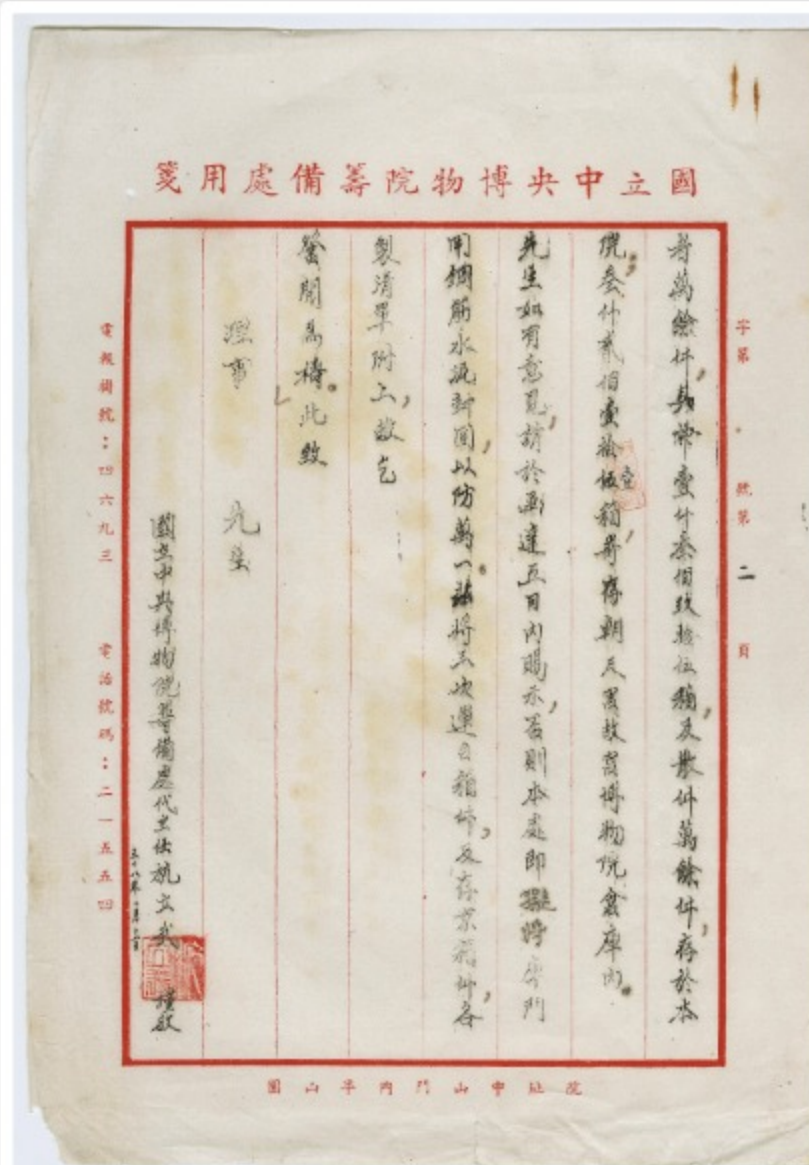 國立中央博物院籌備處用箋
字第 號第二頁
者萬餘件，共裝壹仟叁佰玖拾伍箱，及散件萬餘件，存於本
院；叁仟貳佰壹拾伍箱，寄存朝天宮故宮博物院倉庫內。
壹
先生如有意見，請於函達五日內賜示，否則本處即擬將庫門
用鋼筋水泥封固，以防萬一。茲將三次運台箱件，及存京箱件，各
製清單附上，敬乞
詧閱為禱。此致
理事
先生
國立中央博物院籌備處代主任杭立武
謹啟
電報掛號：四六九三
電話號碼：二一五五四
院址中山門內半山園